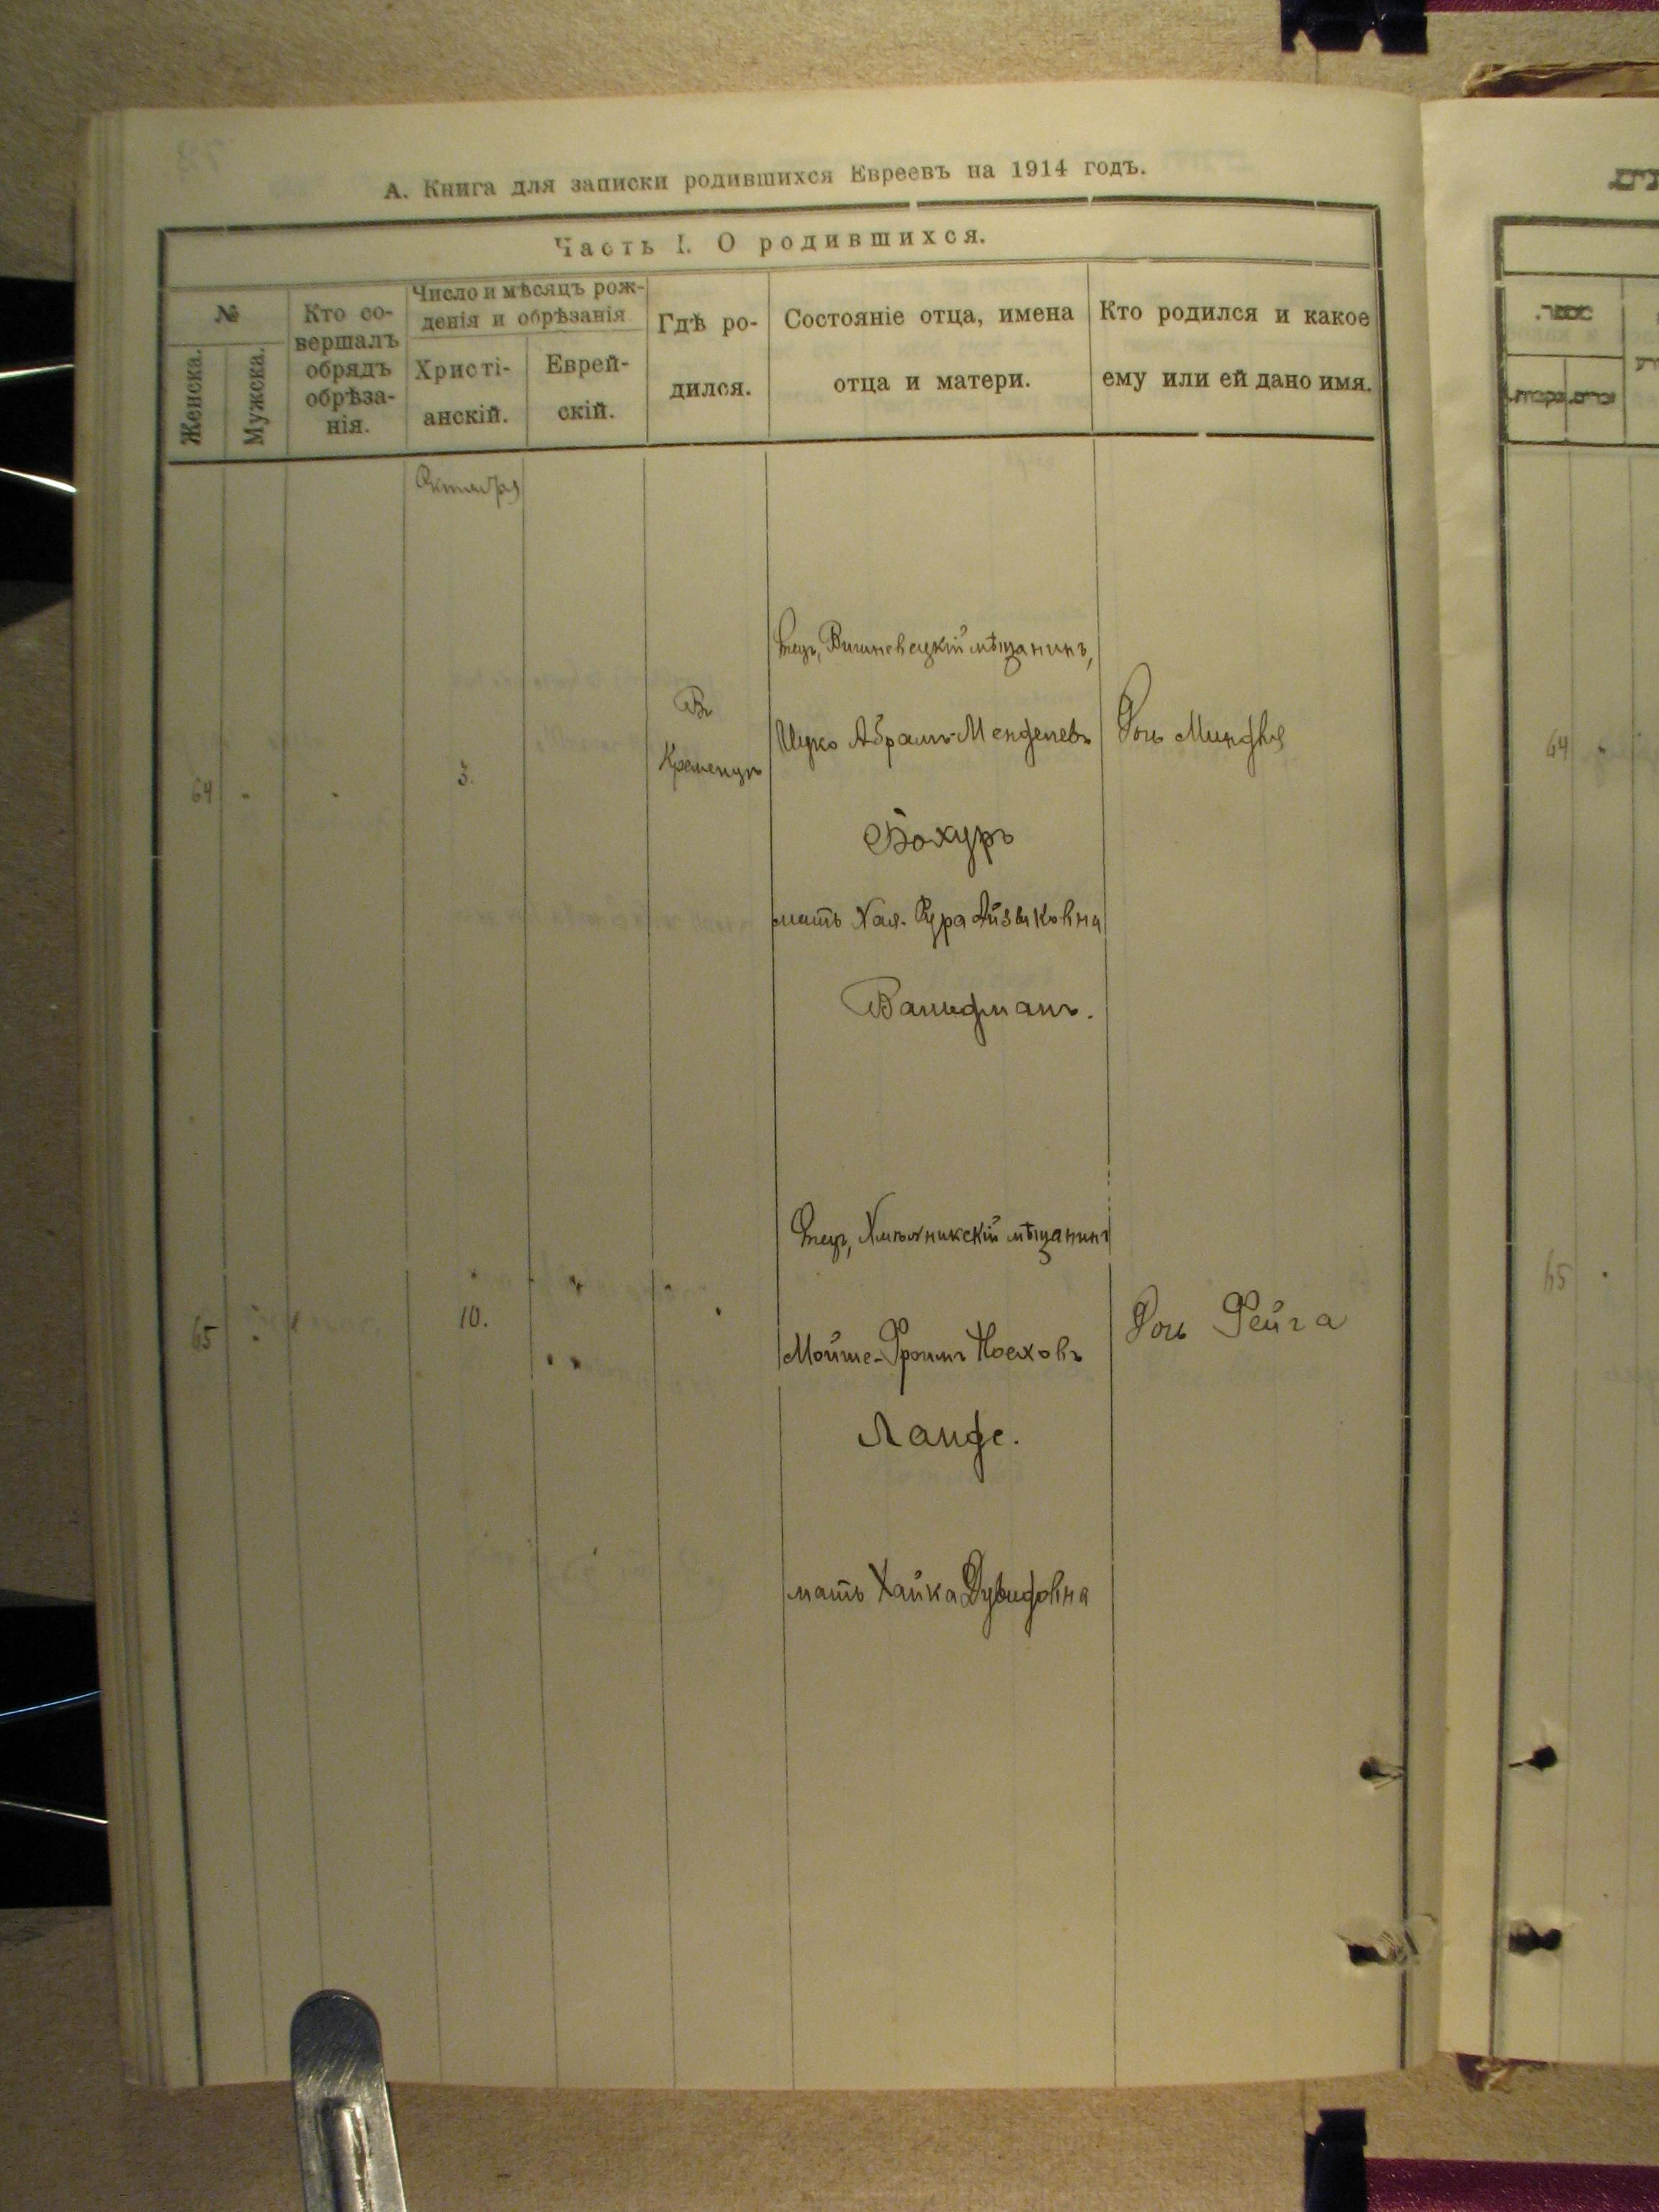 А. Книга для записки родившихся Евреевъ на 1914 годъ.
Часть I. О родившихся.
№
Женска.
Мужска.
Кто со-
вершалъ
обрядъ
обрѣза-
нія.
Число и мѣсяцъ рож-
денія и обрѣзанія
Христі-
анскій.
Еврей-
скій.
Гдѣ ро-
дился.
Состояніе отца, имена
отца и матери.
Кто родился и какое
ему или ей дано имя.
Октября
64
3.
Въ
Кременцѣ
Отецъ, Вишневецкій мѣщанинъ,
Ицко Абрамъ-Менделевъ
Бохуръ
мать Хая-Сура Айзыковна
Вальдманъ.
Дочь Миндля
65
10.
Отецъ, Хмѣльникскій мѣщанинъ
Мойше-Фроимъ Носховъ
Ланде.
мать Хайка Дувидовна
Дочь Фейга
64
65